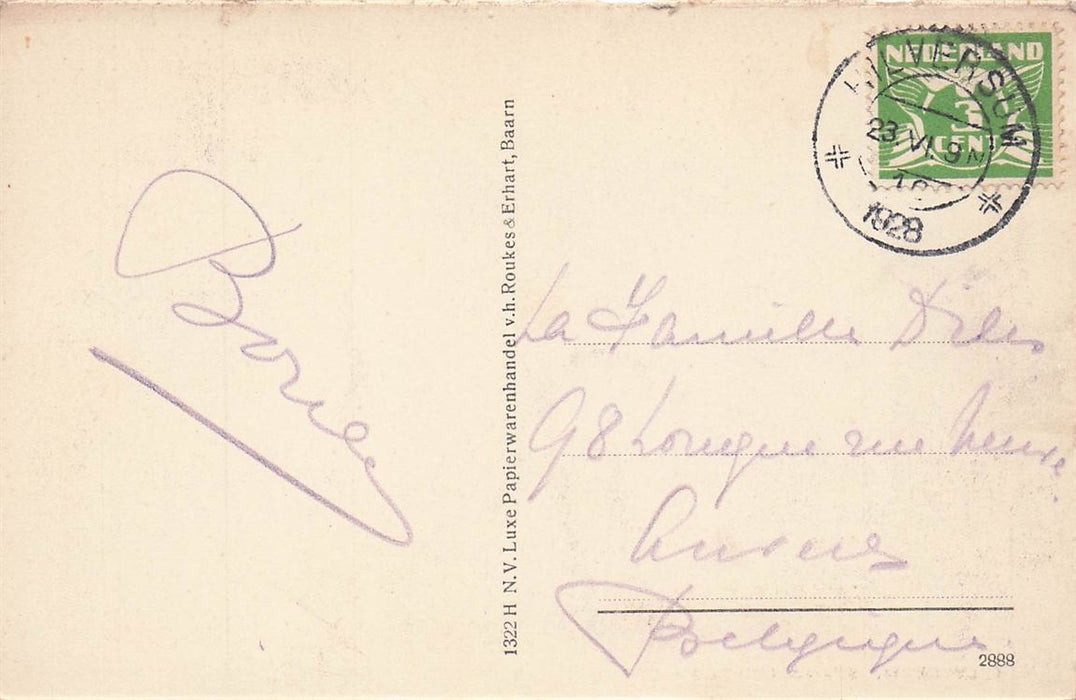 NEDERLAND
3
CENT
HILVERSUM
23 VI. 9 N
1928
1322 H N.V. Luxe Papierwarenhandel v.h. Roukes & Erhart, Baarn
La Famille
98 Longue rue neuve
Anvers
Belgique
2888